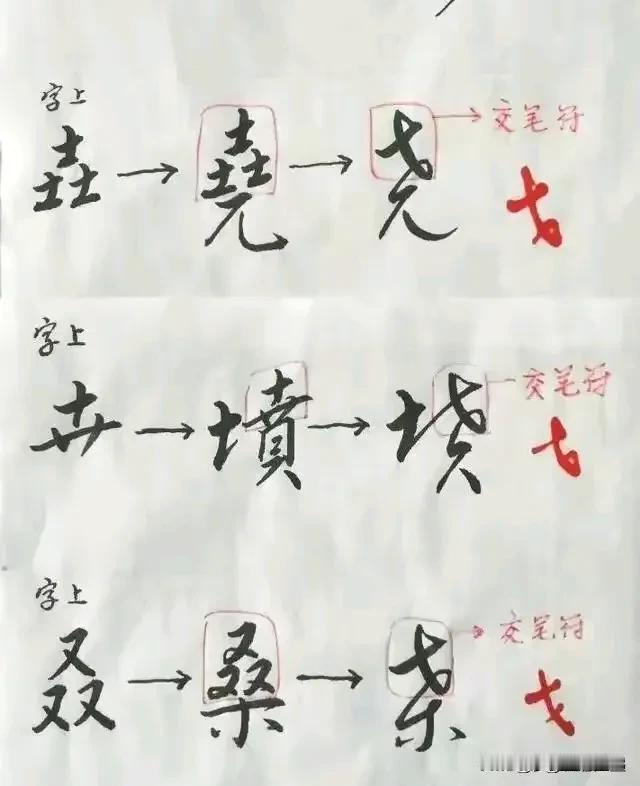 字上
垚 → 堯 → 尧 → 交笔符
字上
卉 → 墳 → 坟 交笔符
字上
叒 → 桑 → 桒 → 交笔符